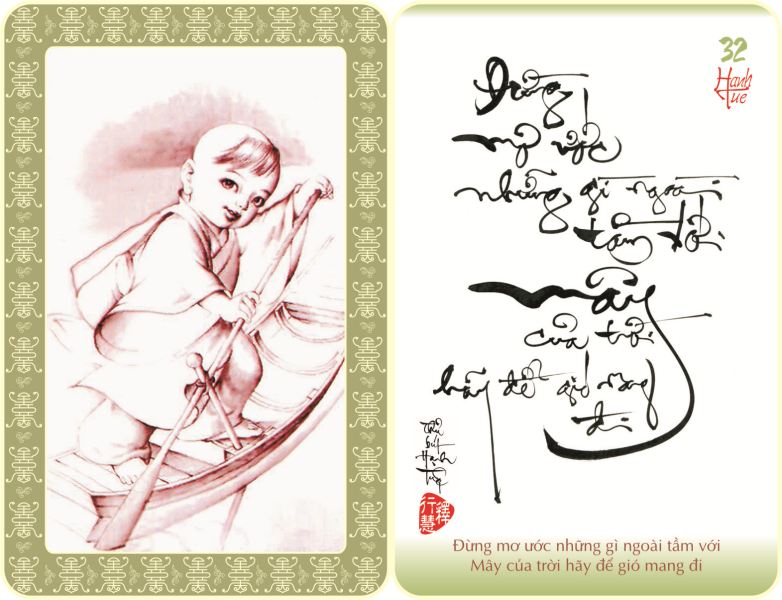 32
Hanh
Tue
Đừng
mơ ước
những gì ngoài
tầm với
mây
của trời
hãy để gió mang
đi
Thủ
bút
Hạnh
Tuệ
行 釋
慧
Đừng mơ ước những gì ngoài tầm với
Mây của trời hãy để gió mang đi